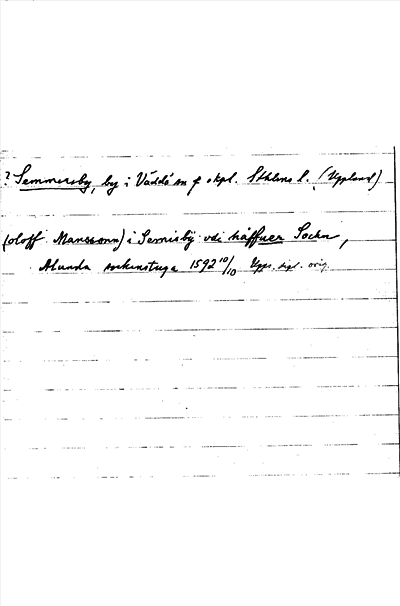 ? Semmersby, by i Väddö sn o skpl. Sthlms l. (Uppland)
(oloff Mansson) i Semisbÿ vdi häffuer Sockn,
Alunda sockenstuga 1592 10/10 Upps. dipl. orig.